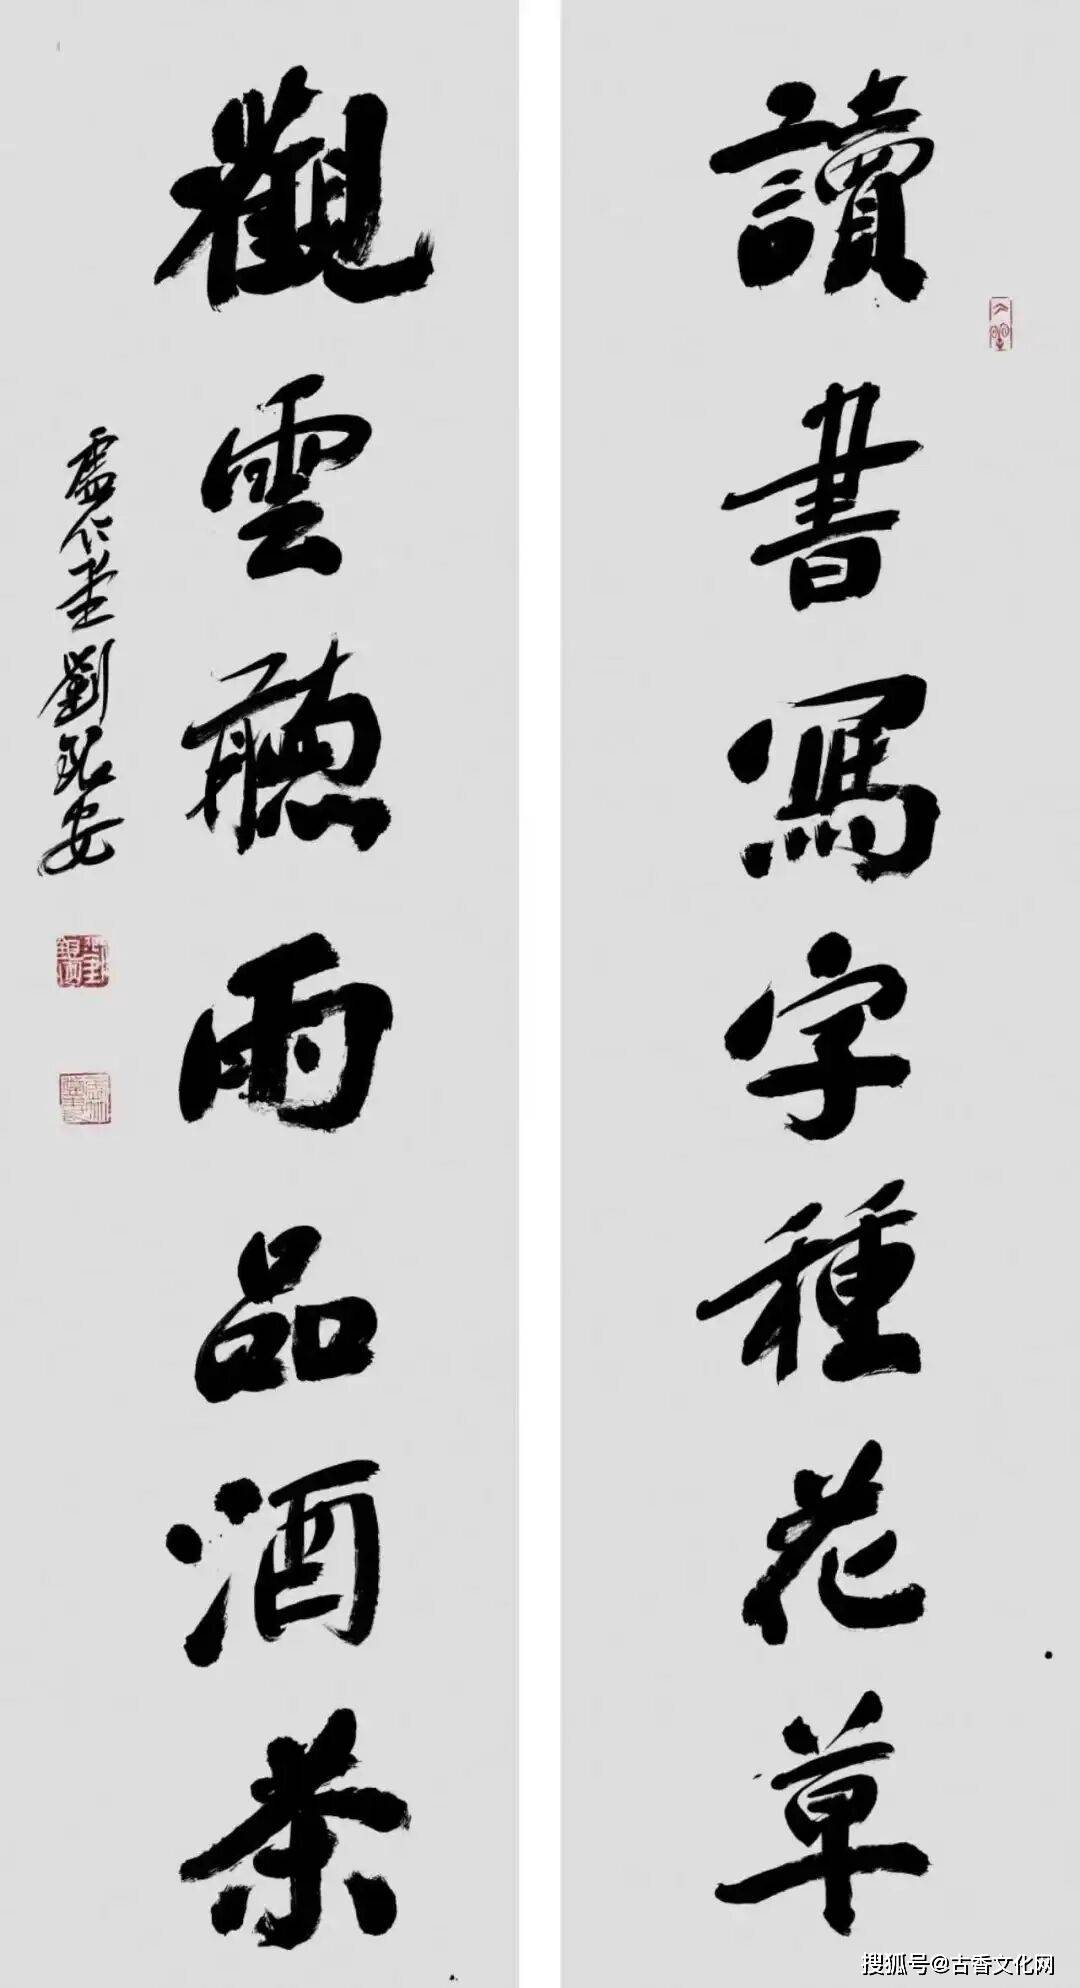 讀書寫字種花草
觀雲聽雨品酒茶
盧仁堂劉銀安
搜狐号@古香文化网